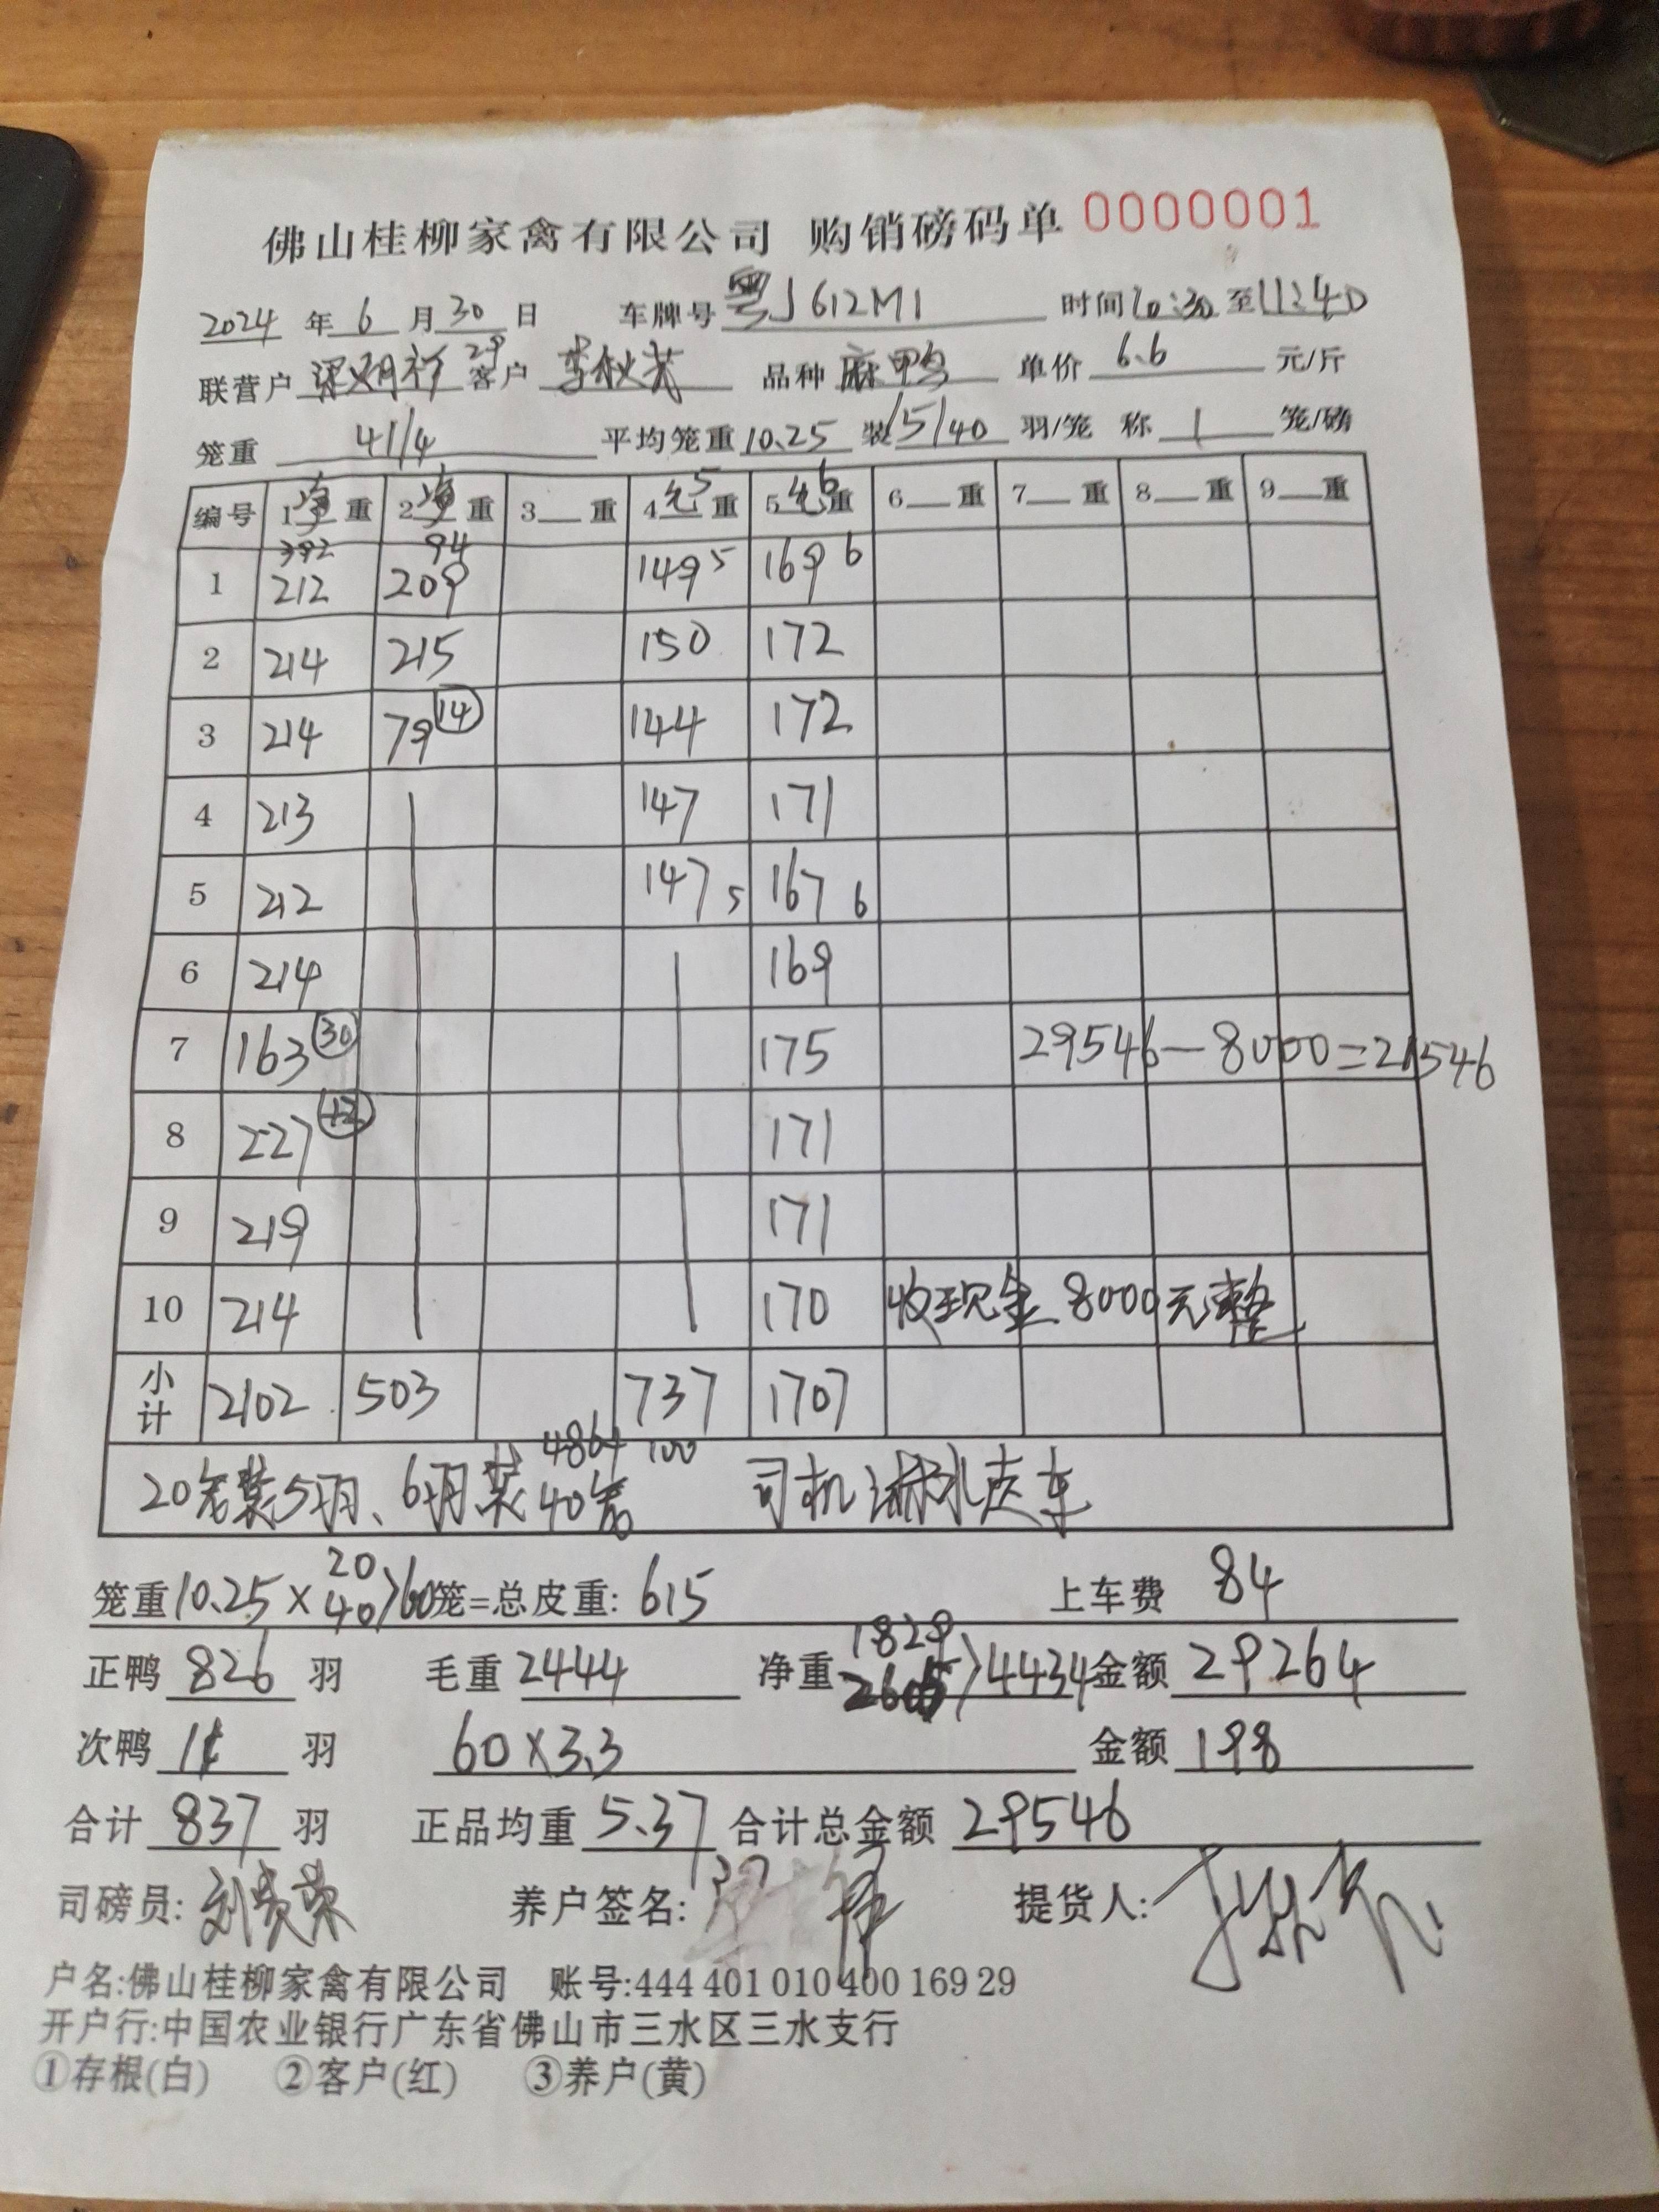 佛山桂柳家禽有限公司 购销磅码单 0000001
2024 年 6 月 30 日 车牌号 粤J612M1 时间 10:30 至 11:40
联营户 梁炳祥 29 客户 李秋芳 品种 麻鸭 单价 6.6 元/斤
笼重 41/4 平均笼重 10.25 装 15/40 羽/笼 称 1 笼/磅
编号 1净重 2净重 3__重 4毛5重 5毛6重 6__重 7__重 8__重 9__重
392 94
1 212 209 149 5 169 6
2 214 215 150 172
3 214 79 14 144 172
4 213 147 171
5 212 147 5 167 6
6 214 169
7 163 30 175 29546-8000=21546
8 227 171
9 219 171
10 214 170 收现金 8000元整
小计 2102 503 737 1707
4864 100
20笼装5羽、6羽装40笼 司机淋水走车
笼重 10.25 × 20 40 > 60 笼=总皮重: 615 上车费 84
正鸭 826 羽 毛重 2444 净重 1829 2605 > 4434 金额 29264
次鸭 11 羽 60×3.3 金额 198
合计 837 羽 正品均重 5.37 合计总金额 29546
司磅员: 刘贵荣 养户签名: 提货人:
户名:佛山桂柳家禽有限公司 账号:444 401 010 400 169 29
开户行:中国农业银行广东省佛山市三水区三水支行
①存根(白) ②客户(红) ③养户(黄)